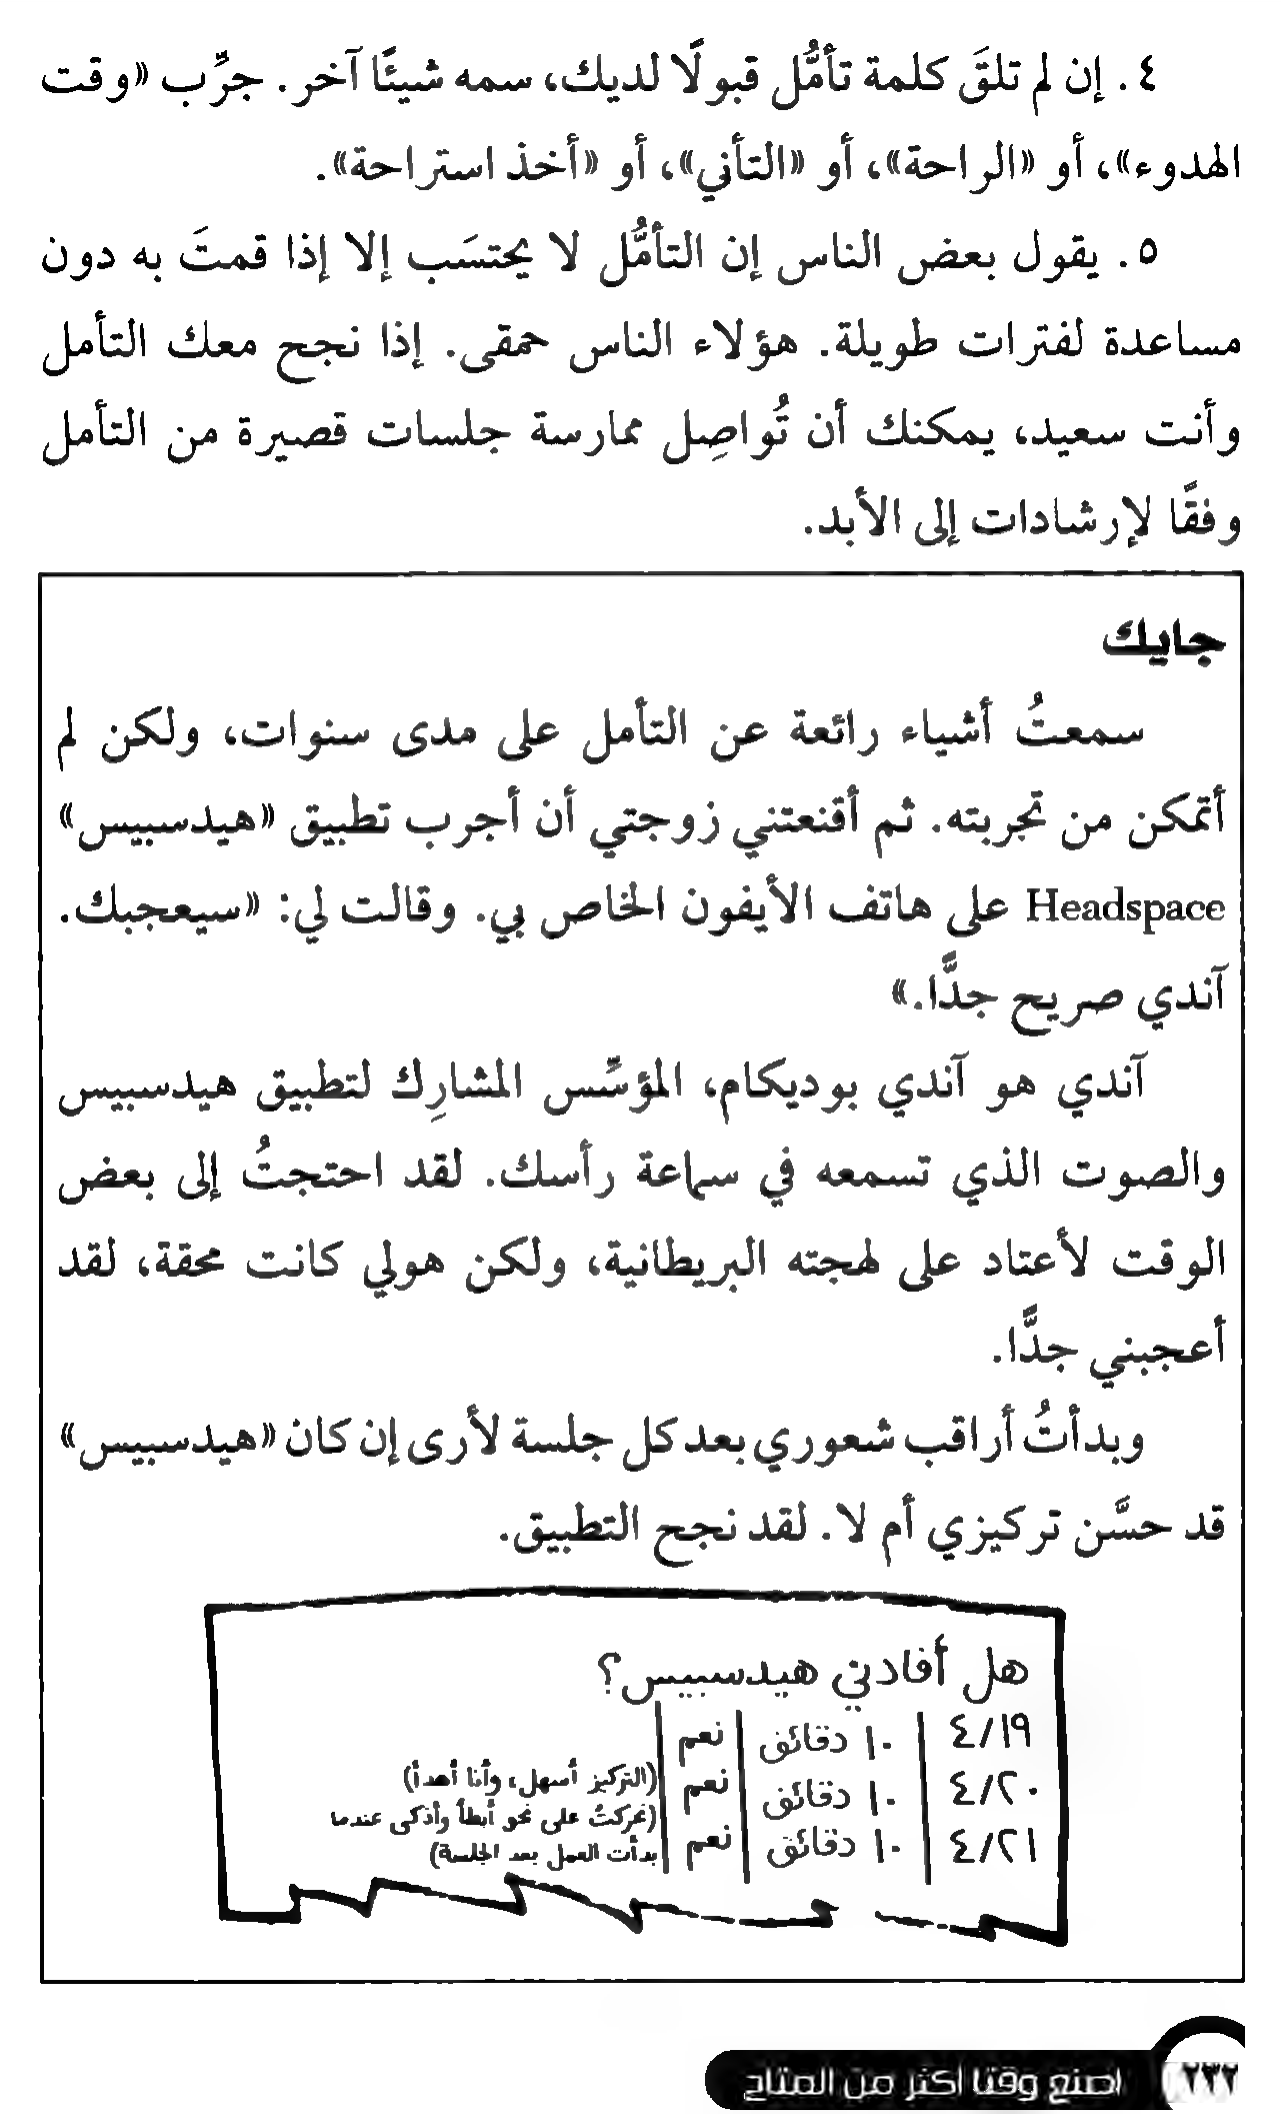 ٤. إن لم تلقَ كلمة تأمُّل قبولًا لديك، سمه شيئًا آخر. جرِّب «وقت
الهدوء»، أو «الراحة»، أو «التأني»، أو «أخذ استراحة».
٥. يقول بعض الناس إن التأمُّل لا يحتسَب إلا إذا قمتَ به دون
مساعدة لفترات طويلة. هؤلاء الناس حمقى. إذا نجح معك التأمل
وأنت سعيد، يمكنك أن تُواصِل ممارسة جلسات قصيرة من التأمل
وفقًا لإرشادات إلى الأبد.
جايك
سمعتُ أشياء رائعة عن التأمل على مدى سنوات، ولكن لم
أتمكن من تجربته. ثم أقنعتني زوجتي أن أجرب تطبيق «هيدسبيس»
Headspace على هاتف الأيفون الخاص بي. وقالت لي: «سيعجبك.
آندي صريح جدًّا.»
آندي هو آندي بوديكام، المؤسِّس المشارِك لتطبيق هيدسبيس
والصوت الذي تسمعه في سماعة رأسك. لقد احتجتُ إلى بعض
الوقت لأعتاد على لهجته البريطانية، ولكن هولي كانت محقة، لقد
أعجبني جدًّا.
وبدأتُ أراقب شعوري بعد كل جلسة لأرى إن كان «هيدسبيس»
قد حسَّن تركيزي أم لا. لقد نجح التطبيق.
هل أفادني هيدسبيس؟
٤/١٩ ١٠ دقائق نعم
٤/٢٠ ١٠ دقائق نعم (التركيز أسهل، وأنا أهدأ)
٤/٢١ ١٠ دقائق نعم (تحركتُ على نحو أبطأ وأذكى عندما
بدأت العمل بعد الجلسة)
٢٣٢ اصنع وقتا أكثر من المتاح